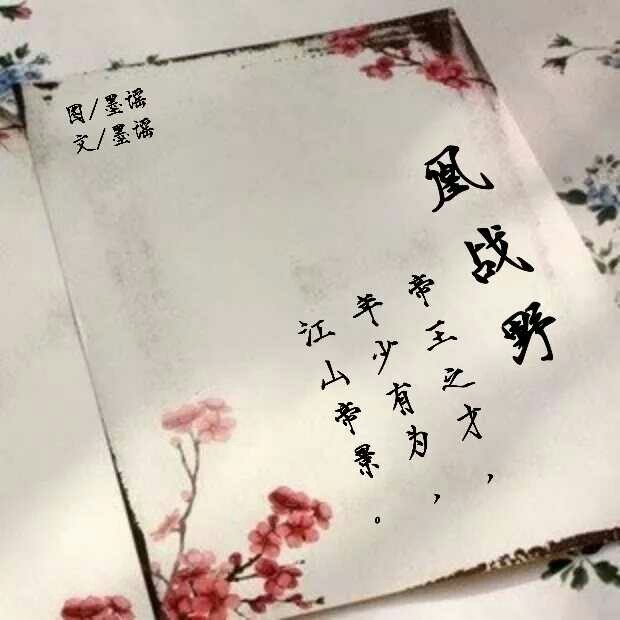 图/墨谣
文/墨谣
凰战野
帝王之才，
年少有为，
江山帝景。